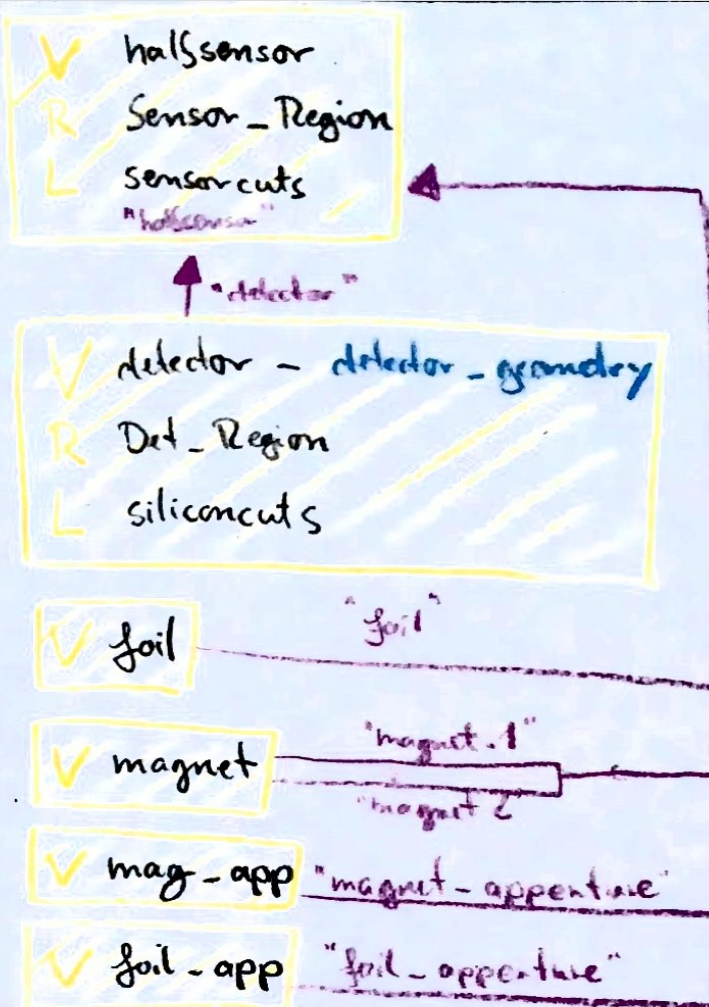 V halfsensor
R Sensor_Region
L sensorcuts
"halfsensor"
"detector"
V detector - detector_geometry
R Det_Region
L siliconcuts
"foil"
V foil
"magnet.1"
V magnet
"magnet 2"
V mag_app "magnet_appenture"
V foil_app "foil_appenture"